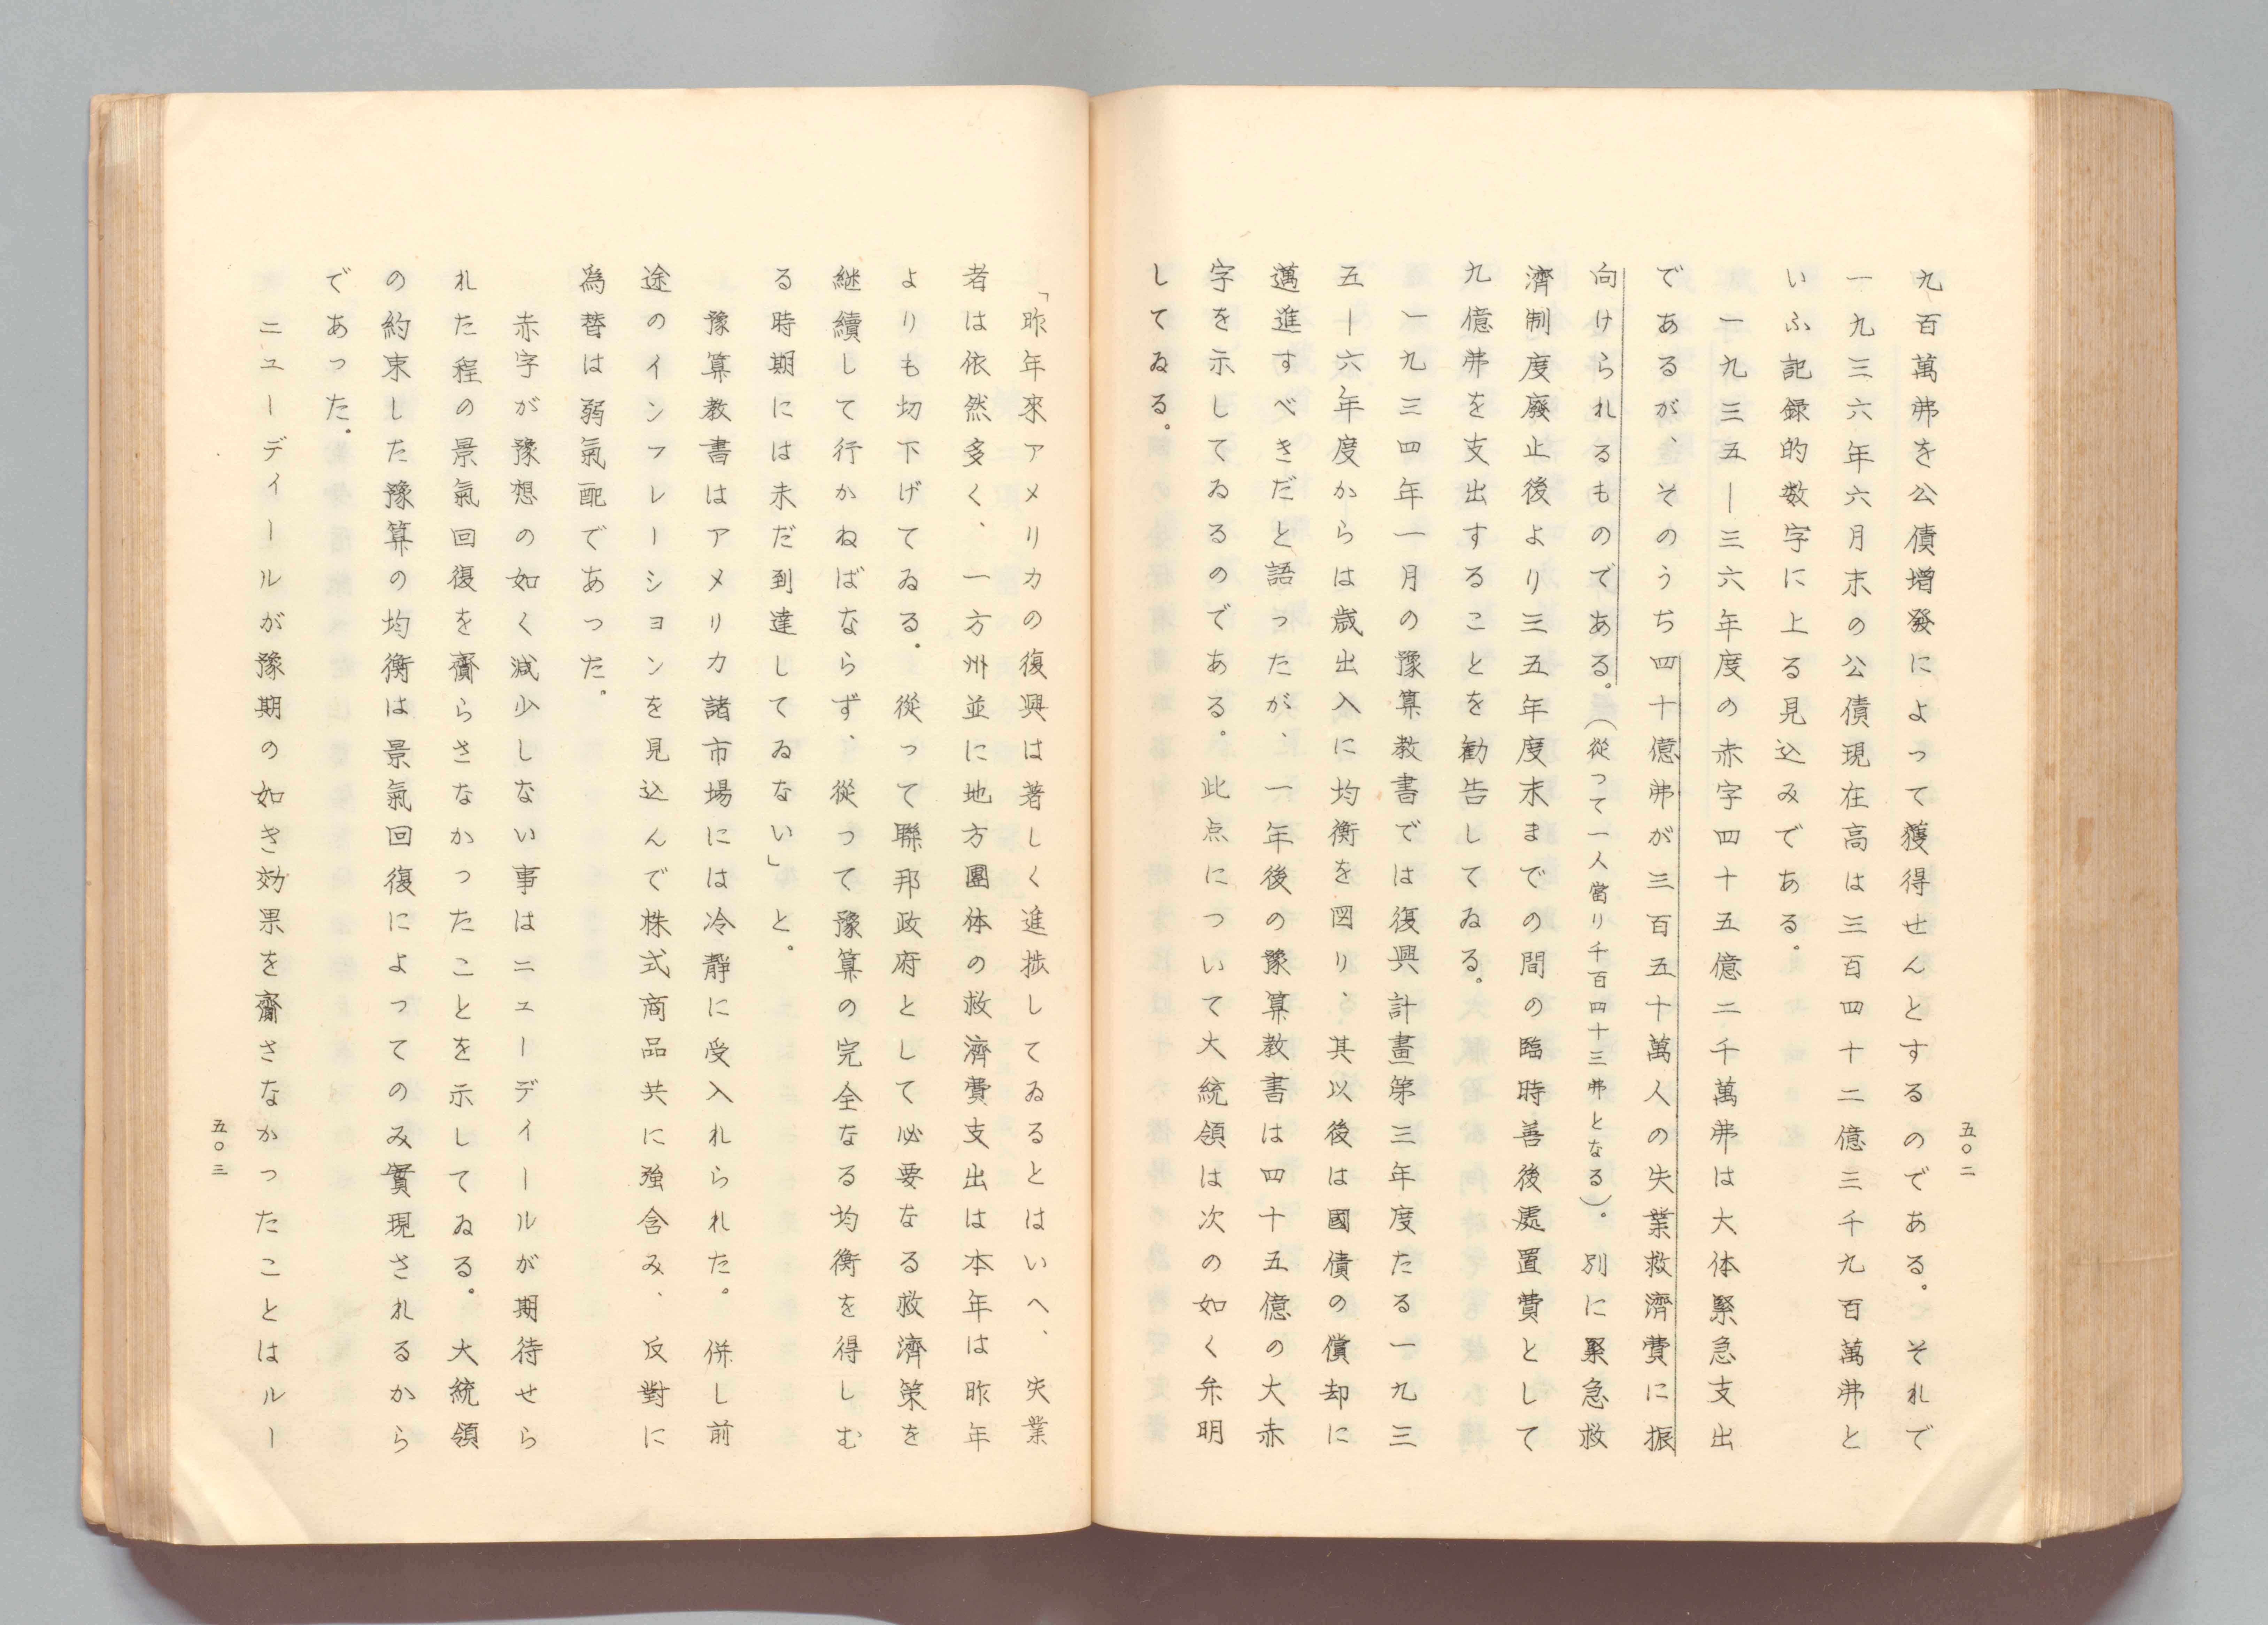 五〇二
九百萬弗を公債増發によって獲得せんとするのである。それで
一九三六年六月末の公債現在高は三百四十二億三千九百萬弗と
いふ記録的数字に上る見込みである。
一九三五ー三六年度の赤字四十五億二千萬弗は大体緊急支出
であるが、そのうち四十億弗が三百五十萬人の失業救濟費に振
向けられるものである。(從って一人當り千百四十三弗となる)。別に緊急救
濟制度廢止後より三五年度末までの間の臨時善後處置費として
九億弗を支出することを勧告してゐる。
一九三四年一月の豫算教書では復興計畫第三年度たる一九三
五ー六年度からは歳出入に均衡を図り、其以後は國債の償却に
邁進すべきだと語ったが、一年後の豫算教書は四十五億の大赤
字を示してゐるのである。此点について大統領は次の如く弁明
してゐる。
「昨年來アメリカの復興は著しく進捗してゐるとはいへ、失業
者は依然多く、一方州並に地方團体の救濟費支出は本年は昨年
よりも切下げてゐる。從って聯邦政府として必要なる救濟策を
継續して行かねばならず、從って豫算の完全なる均衡を得しむ
る時期には未だ到達してゐない」と。
豫算教書はアメリカ諸市場には冷靜に受入れられた。併し前
途のインフレーションを見込んで株式商品共に強含み、反對に
為替は弱氣配であった。
赤字が豫想の如く減少しない事はニューディールが期待せら
れた程の景氣回復を齎らさなかったことを示してゐる。大統領
の約束した豫算の均衡は景氣回復によってのみ實現されるから
であった。
ニューディールが豫期の如き効果を齎さなかったことはルー
五〇三